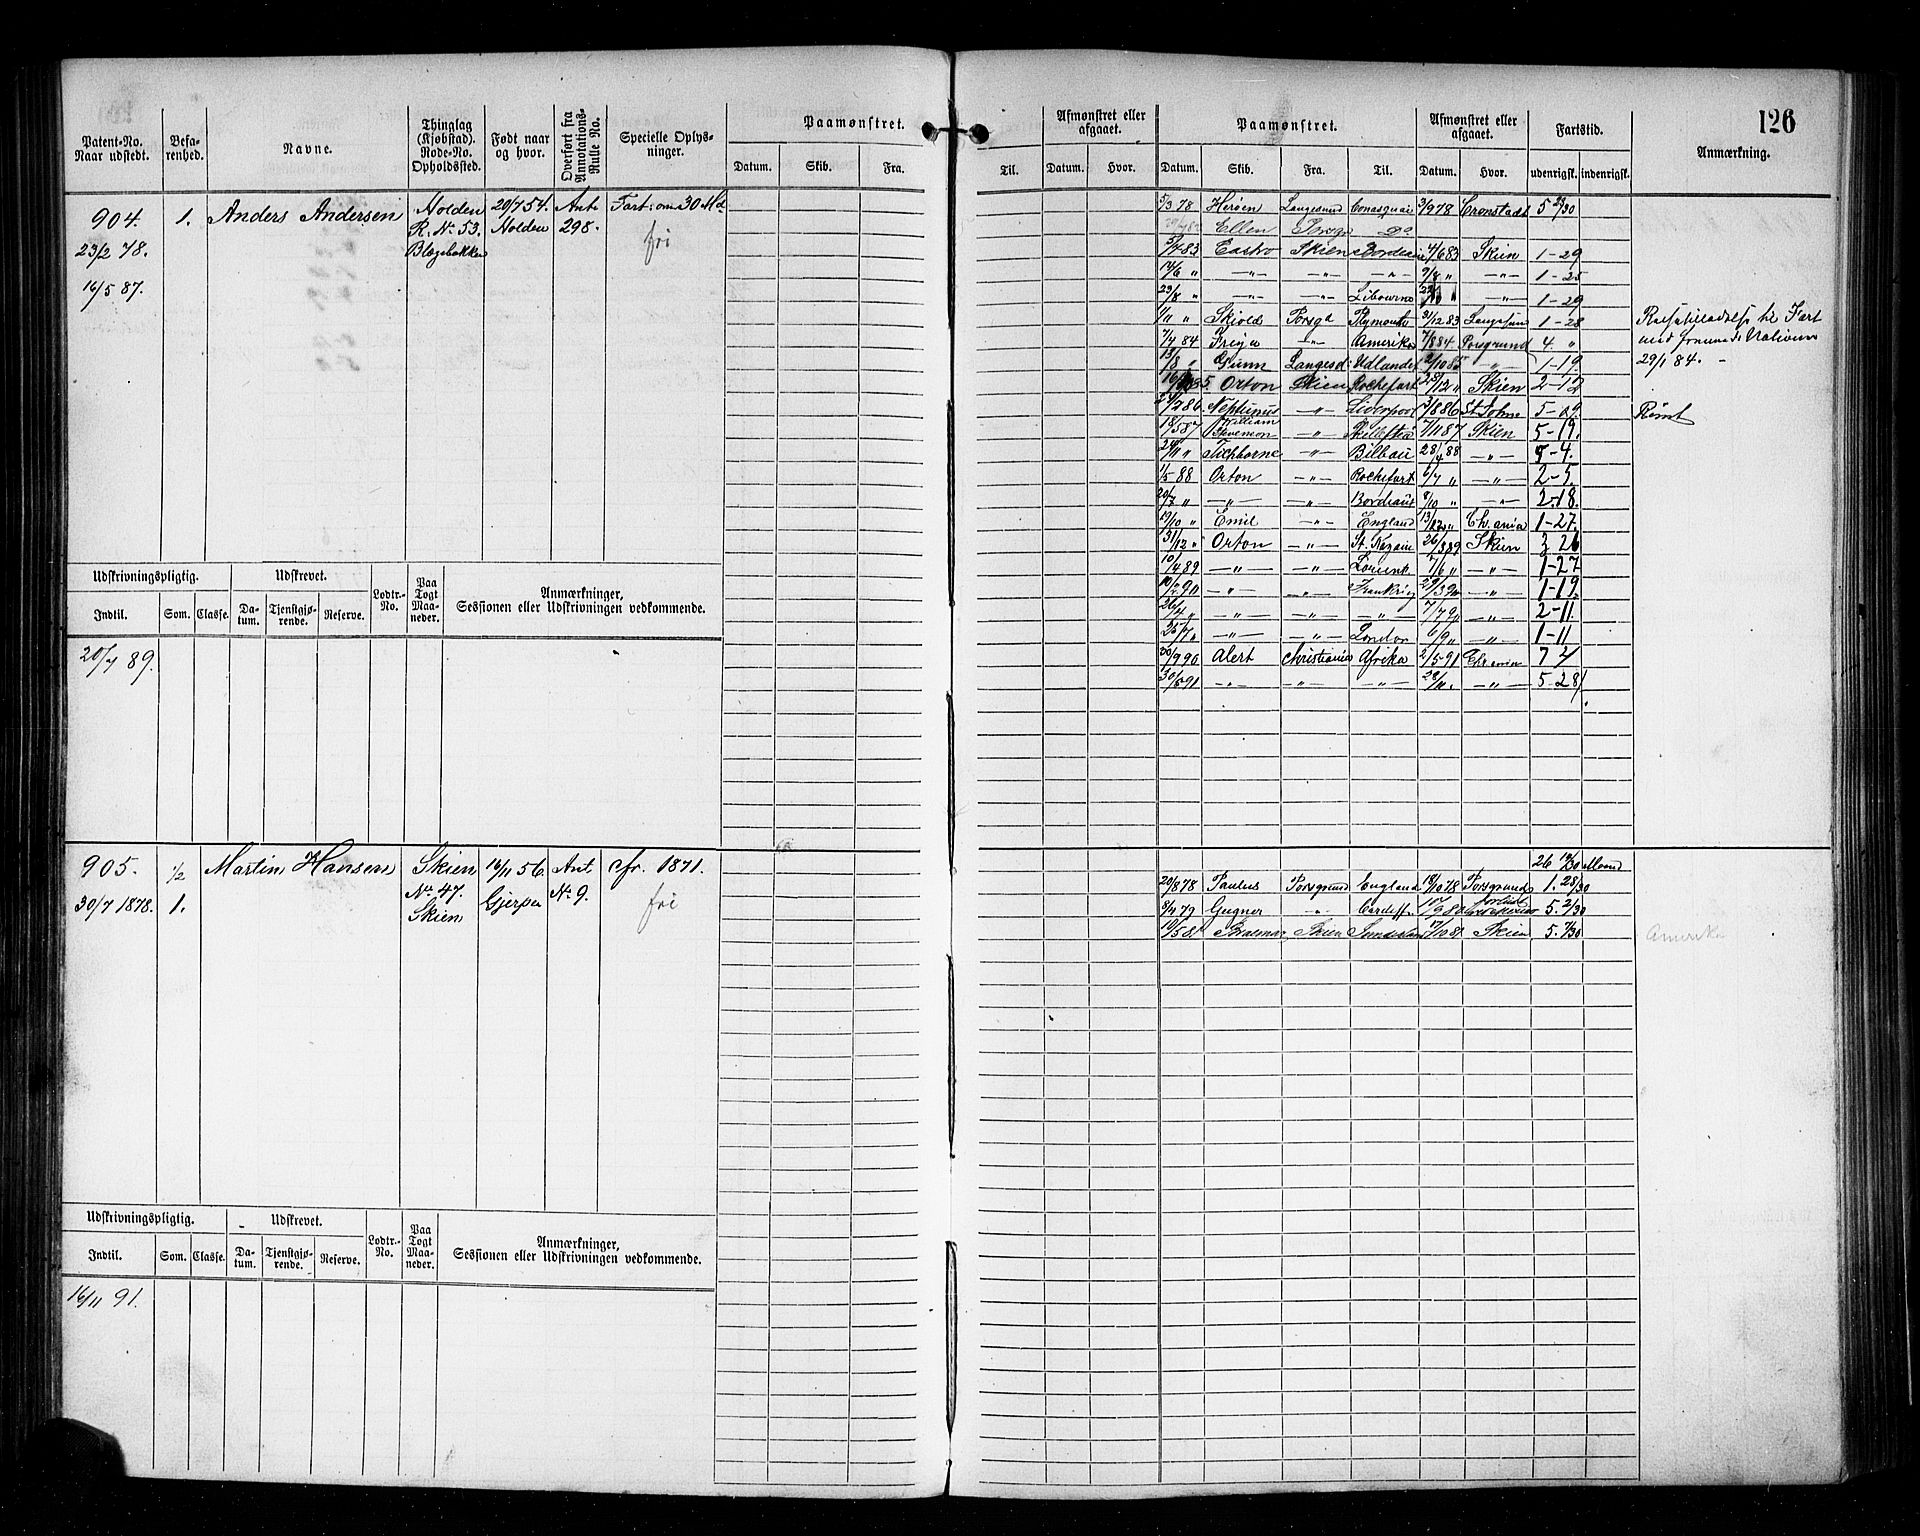 126
Patent-No. Naar udstedt. Befarenhed. Navne. Thinglag (Kjøbstad). Rode-No. Opholdssted. Født naar og hvor. Overført fra Annotations-Rulle No. Specielle Oplysninger. Paamønstret. Afmønstret eller afgaaet. Paamønstret. Afmønstret eller afgaaet. Fartstid. Anmærkning.
Datum. Skib. Fra. Til. Datum. Hvor. Datum. Skib. Fra. Til. Datum. Hvor. udenrigsk. indenrigsk.
904. 1. Anders Andersen Holden 20/7 54. Ant. Fart: om 30 Md
23/2 78. R. No 53. Holden 298. fri
16/5 87.
5/3 78 Herøen Langesund 3/9 78 Cronstadt 5 23/30
Ellen Porsgr Do
5/4 83 Castro Skien Bordeaux 4/6 83 Skien 1-29
14/6 " —"— —"— —"— 9/8 " —"— 1-25
23/8 " —"— —"— Libourne —"— 1-29
1/11 " Skjold Porsgd Plymouth 31/12 83 Langesund 1-28
7/4 84 Freya —"— Amerika 7/8 84 Porsgrund 4. "
13/8 " Gunn Langesd. Udlandet " 1-19.
29/1 84. -
Orton Skien Rochefort 28/12 " Skien 2-12
Neptunus —"— Liverpool 3/8 86 St Johne 5-09. Rømt
18/5 87 William Stevenson —"— Skellefteå 7/11 87 Skien 5-19.
Tichborne —"— Bilbau 28/4 88 —"— 5-4.
1/5 88 Orton —"— Rochefort 6/7 " —"— 2-5.
20/7 " —"— —"— Bordeaux 8/10 " —"— 2-18.
19/10 " Emil —"— England Ch.ania 1-27.
31/12 " Orton —"— St. Nazaire 26/3 89 Skien 26
10/4 89 —"— —"— Lorient 7/6 " —"— 1-27
—"— —"— Frankrig 29/3 90 —"— 1-19.
26/4 " —"— —"— —"— —"— 2-11.
25/7 " —"— —"— London 6/9 " —"— 1-11
30/9 90 Alert Christiania Afrika 2/5 91 Chr.ania
30/5 91 —"— —"— —"— 28/11 . —"— 5-28
Udskrivningspligtig. Udskrevet. Lodtr.-No. Paa Togt Maaneder. Anmærkninger, Sessionen eller Udskrivningen vedkommende.
Indtil. Som. Classe. Datum. Tjenstgjørende. Reserve.
20/7 89.
905. 1/2 Martin Hansen Skien 16/11 56. Ant cfr. 1871.
30/7 1878. 1. No 47. Gjerpen No 9. fri
Skien
26 19/30 Maand
20/8 78 Paulus Porsgrund England 18/10 78 Porsgrund 1. 28/30
8/4 79 Gugner —"— Cardiff forlist 5. 2/30
10/5 81 Skien 17/10 81 Skien 5. 7/30 Amerika
Udskrivningspligtig. Udskrevet. Lodtr.-No. Paa Togt Maaneder. Anmærkninger, Sessionen eller Udskrivningen vedkommende.
Indtil. Som. Classe. Datum. Tjenstgjørende. Reserve.
16/11 91.